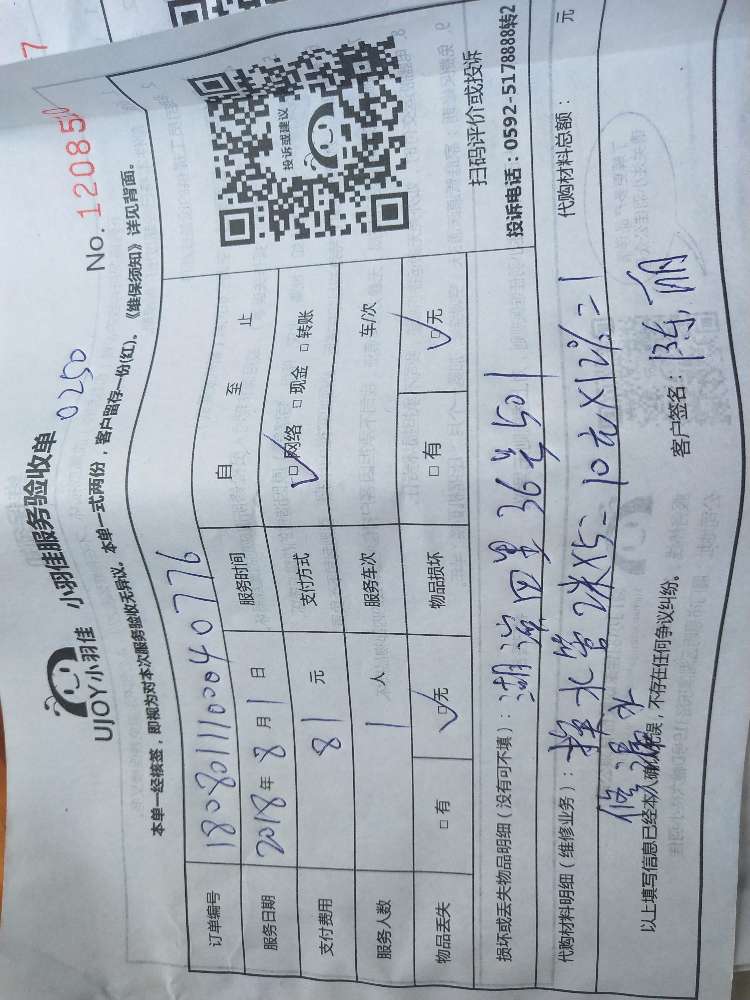 UJOY小羽佳 小羽佳服务验收单
0250
No. 12085
本单一经核签，即视为对本次服务验收无异议。本单一式两份，客户留存一份(红)。《维保须知》详见背面。
订单编号 180801110040776
服务日期 2018年8月1日 服务时间 自 至 止
支付费用 81元 支付方式 ☑网络 □现金 □转账
服务人数 1人 服务车次 车/次
物品丢失 □有 ☑无 物品损坏 □有 ☑无
投诉或建议
扫码评价或投诉
投诉电话：0592-5178888转2
损坏或丢失物品明细（没有可不填）：湖滨四里36号501
代购材料明细（维修业务）： 水管2米X5=10元X12%=1 代购材料总额： 元
修漏水
以上填写信息已经本人确认无误，不存在任何争议纠纷。
客户签名：陈丽